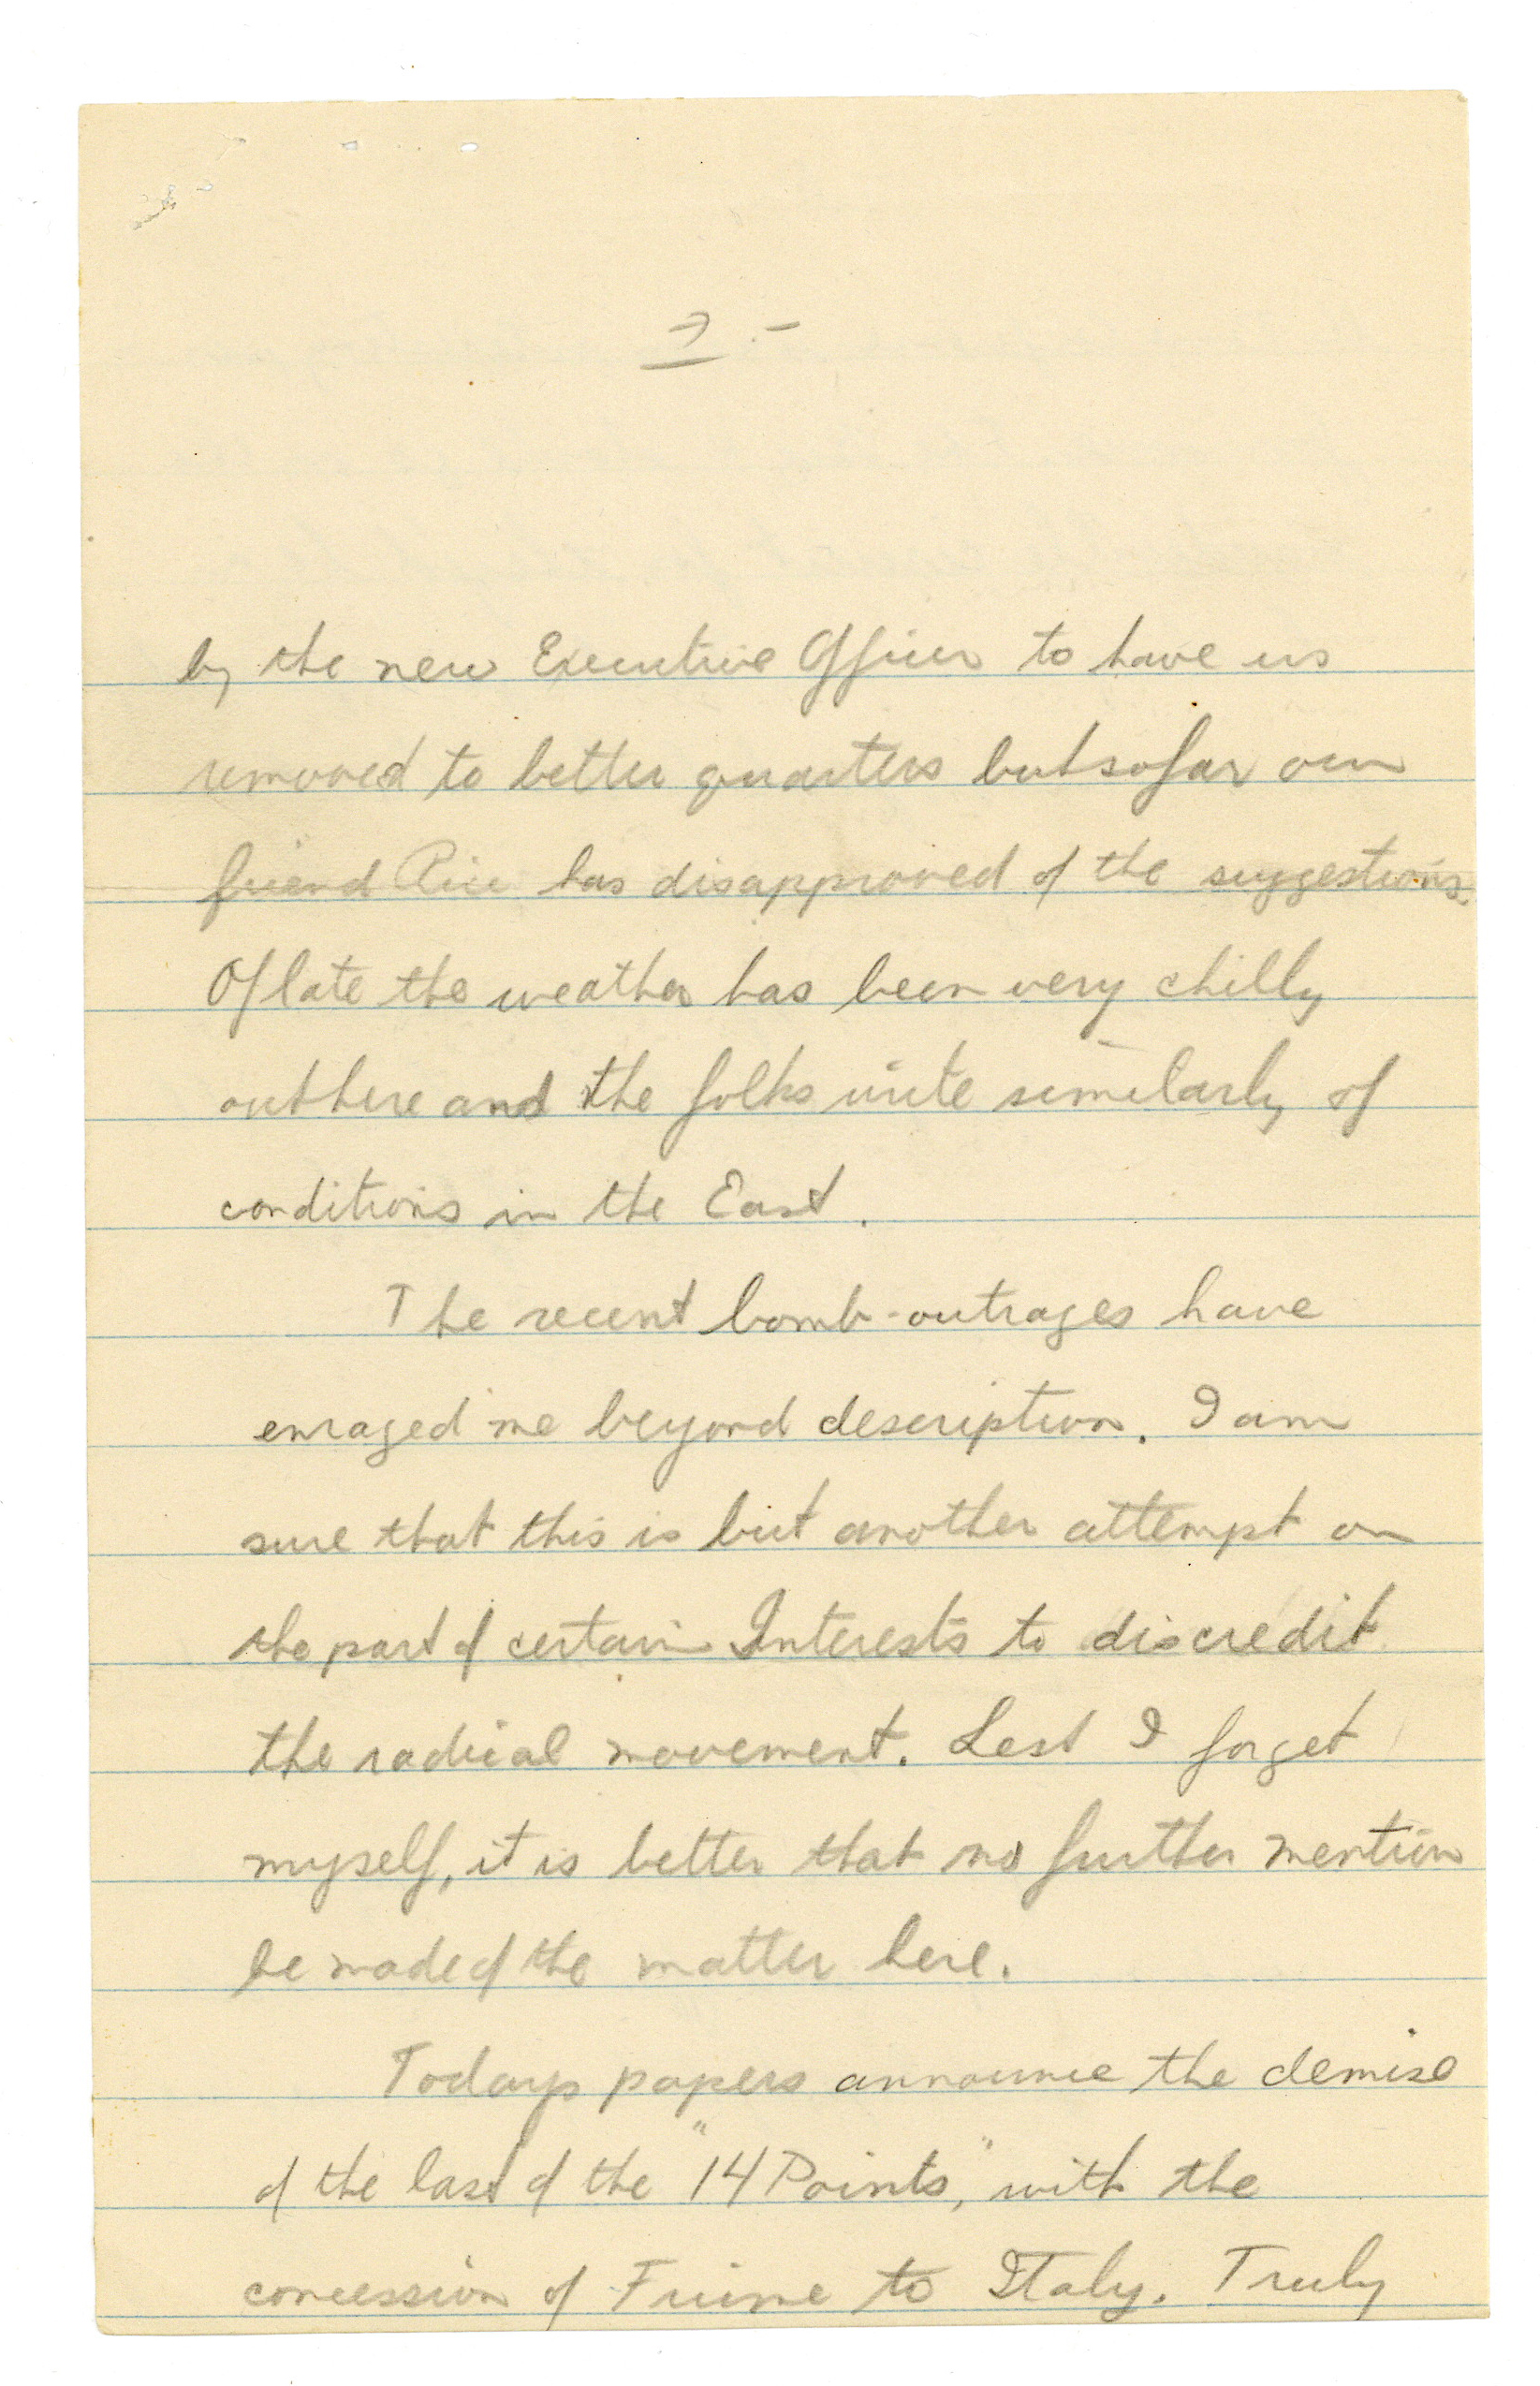 7.-
by the new Executive Officer to have us
removed to better quarters but so far our
friend Rice has disapproved of the suggestions.
Of late the weather has been very chilly
out here and the folks write similarly of
conditions in the East.
The recent bomb-outrages have
enraged me beyond description. I am
sure that this is but another attempt on
the part of certain Interests to discredit
the radical movement. Lest I forget
myself, it is better that no further mention
be made of the matter here.
Todays papers announce the demise
of the last of the "14 Points," with the
concession of Fiume to Italy. Truly